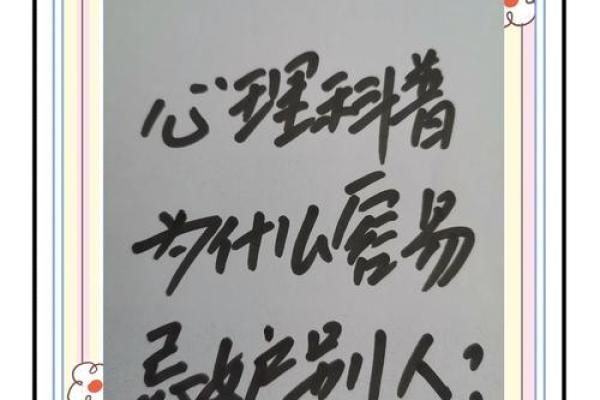 心理科普
为什么容易
忌妒别人?